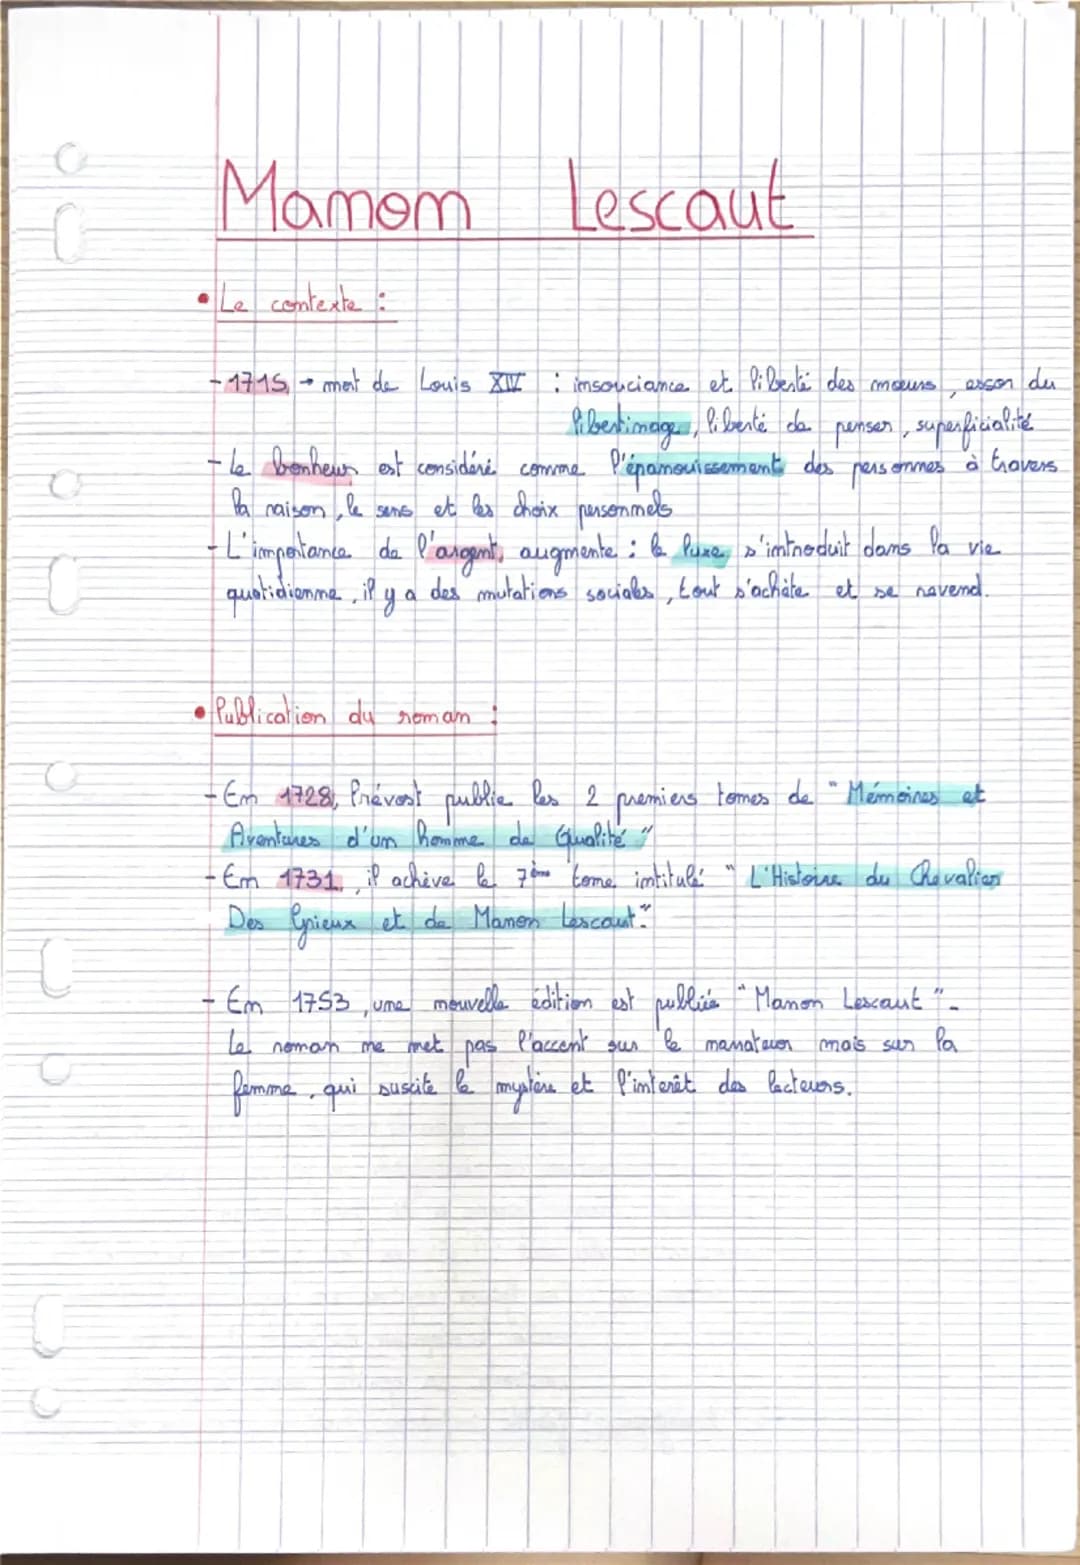 Manon Lescaut
• Le contexte :
- 1715 → mort de Louis XIV : insouciance et liberté des mœurs, essor du
libertinage, liberté de penser, superficialité
- Le bonheur est considéré comme l'épanouissement des personnes à travers
la raison, le sens et les choix personnels
- L'importance de l'argent augmente : le luxe s'introduit dans la vie
quotidienne, il y a des mutations sociales, tout s'achète et se revend.
• Publication du roman :
- En 1728, Prévost publie les 2 premiers tomes de "Mémoires et
Aventures d'un homme de Qualité"
- En 1731, il achève le 7ème tome intitulé "L'Histoire du Chevalier
Des Grieux et de Manon Lescaut."
- En 1753, une nouvelle édition est publiée "Manon Lescaut".
Le roman ne met pas l'accent sur le narrateur mais sur la
femme, qui suscite le mystère et l'interêt des lecteurs.